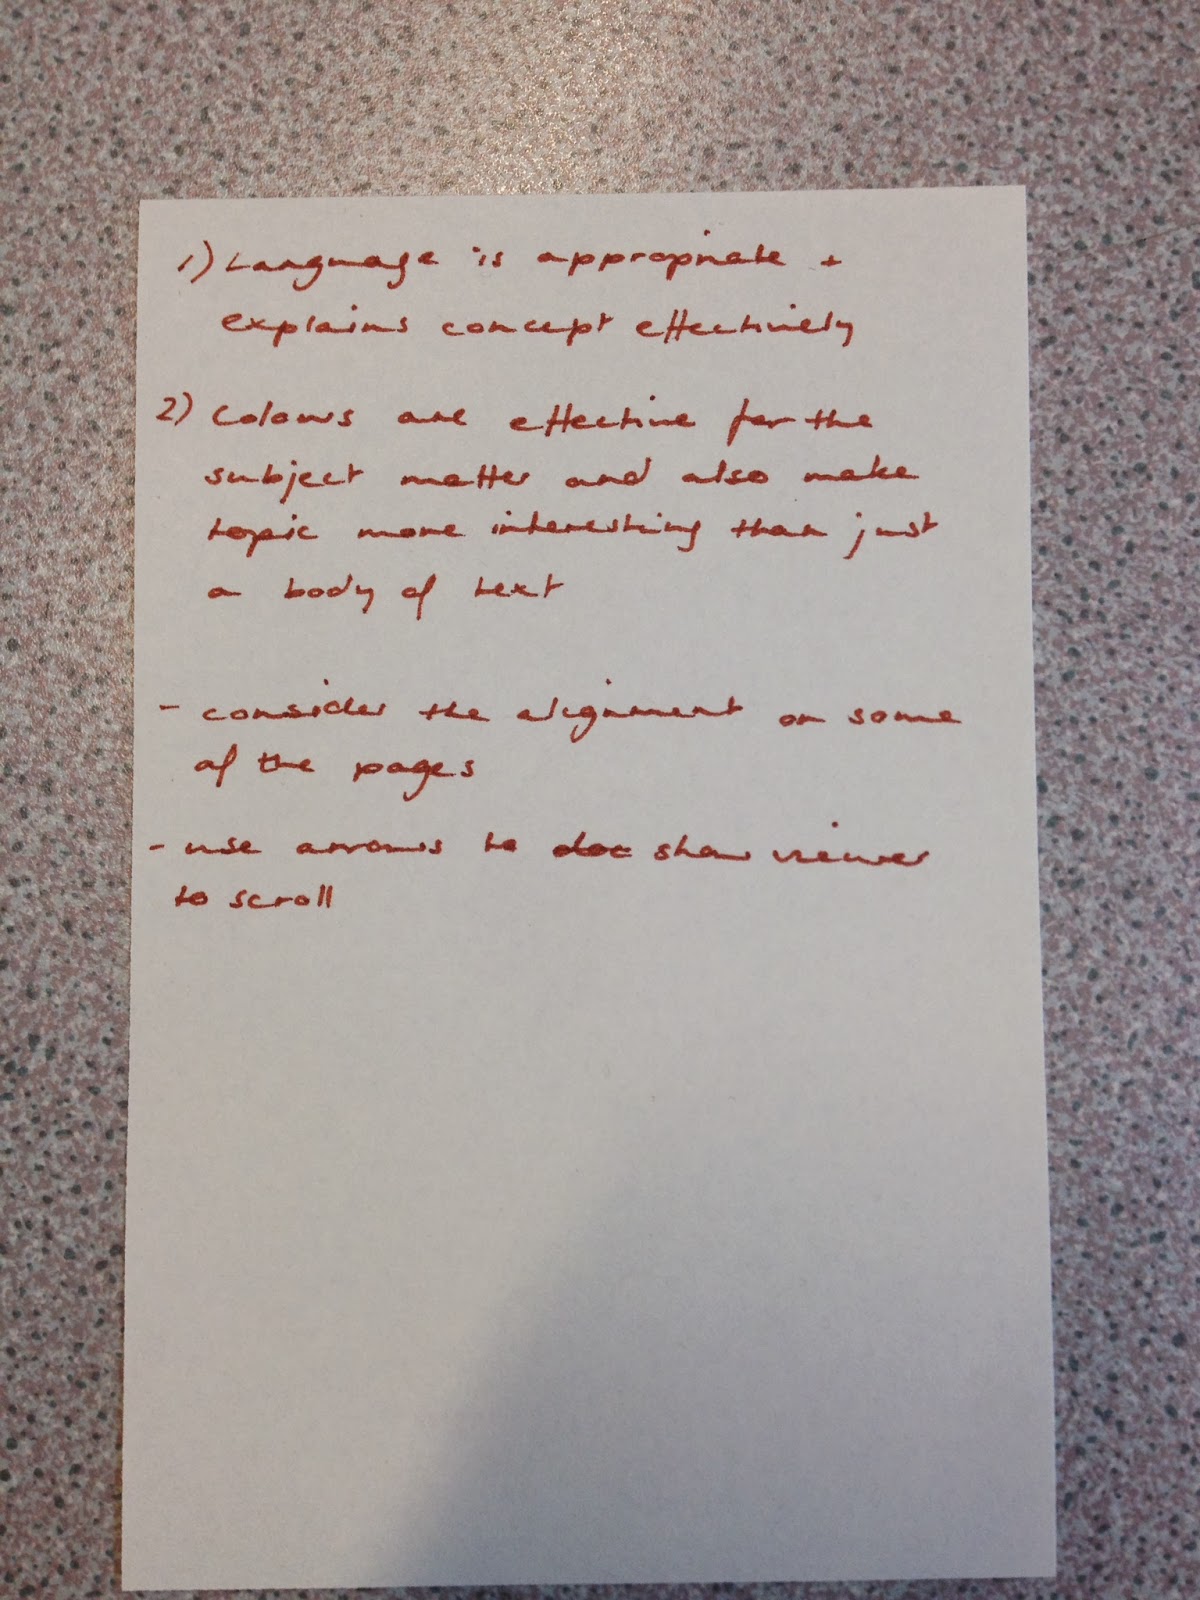 1) Language is appropriate +
explains concept effectively
2) Colours are effective for the
subject matter and also make
topic more interesting than just
a body of text
- consider the alignment on some
of the pages
- use arrows to show viewer
to scroll